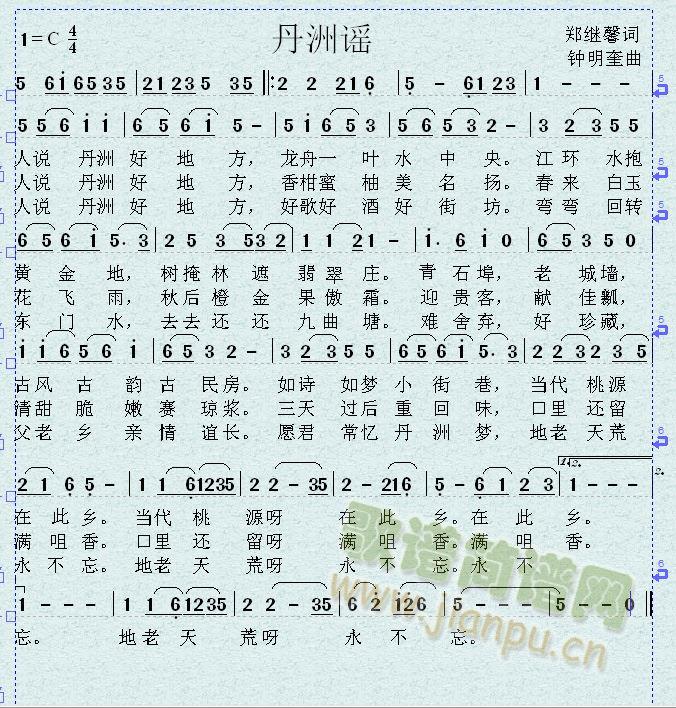 丹洲谣
1=C 4/4
郑继馨词
钟明奎曲
5 6i6535 | 21235 35 |: 2 2 216 | 5 - 6123 | 1 - - -
5 5 6 i i | 6 5 6 i 5 - | 5 i 6 5 3 | 5 6 5 3 2 - | 3 2 3 5 5
人说 丹洲 好 地 方， 龙舟一 叶 水 中 央。 江 环 水抱
人说 丹洲 好 地 方， 香柑蜜 柚 美 名 扬。 春 来 白玉
人说 丹洲 好 地 方， 好歌好 酒 好 街 坊。 弯 弯 回转
6 5 6 i 5. 3 | 2 5 3 5 3 2 | 1 1 2 1 - | i. 6 i 0 | 6 5 3 5 0
黄 金 地， 树掩 林 遮 翡 翠 庄。 青 石 埠， 老 城墙，
花 飞 雨， 秋后 橙 金 果 傲 霜。 迎 贵 客， 献 佳 瓤，
东 门 水， 去去 还 还 九 曲 塘。 难 舍 弃， 好 珍藏，
i i 6 5 6 i | 6 5 3 2 - | 3 2 3 5 5 | 6 5 6 i 5. 3 | 2 2 3 2 3 5
古风 古 韵 古 民房。 如诗 如梦 小 街 巷， 当代 桃源
清甜 脆 嫩 赛 琼浆。 三天 过后 重 回 味， 口里 还留
父老 乡 亲 情 谊长。 愿君 常忆 丹 洲 梦， 地老 天荒
2 1 6 5 - | 1 1 61235 | 2 2 - 35 | 2 - 216 | 5 - 6 1 2 3 | 1 - - -
1.2.
2.
在 此 乡。 当代 桃 源呀 在 此 乡。在 此 乡。
满 咀 香。 口里 还 留呀 满 咀 香。满 咀 香。
永 不 忘。 地老 天 荒呀 永 不 忘。永 不
1 - - - | 1 1 61235 | 2 2 - 35 | 6 2 126 | 5 - - - | 5 - - 0 ||
忘。 地老 天 荒呀 永 不 忘。
歌谱简谱网
www.jianpu.cn